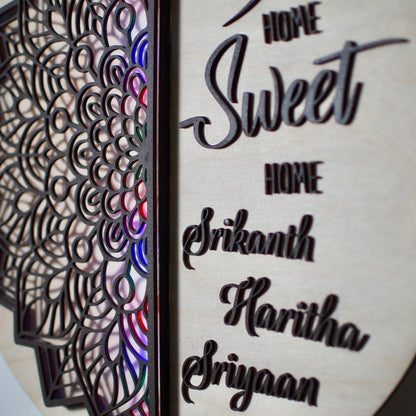 HOME
Sweet
HOME
Srikanth
Haritha
Sriyaan